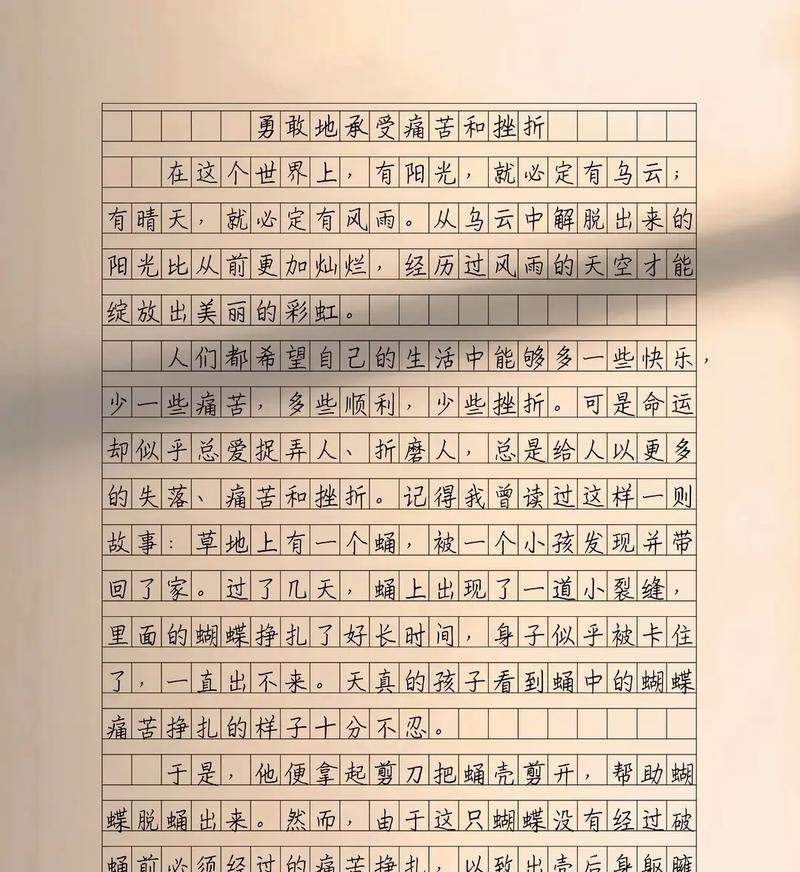 勇敢地承受痛苦和挫折
在这个世界上，有阳光，就必定有乌云；
有晴天，就必定有风雨。从乌云中解脱出来的
阳光比从前更加灿烂，经历过风雨的天空才能
绽放出美丽的彩虹。
人们都希望自己的生活中能够多一些快乐，
少一些痛苦，多些顺利，少些挫折。可是命运
却似乎总爱捉弄人、折磨人，总是给人以更多
的失落、痛苦和挫折。记得我曾读过这样一则
故事：草地上有一个蛹，被一个小孩发现并带
回了家。过了几天，蛹上出现了一道小裂缝，
里面的蝴蝶挣扎了好长时间，身子似乎被卡住
了，一直出不来。天真的孩子看到蛹中的蝴蝶
痛苦挣扎的样子十分不忍。
于是，他便拿起剪刀把蛹壳剪开，帮助蝴
蝶脱蛹出来。然而，由于这只蝴蝶没有经过破
蛹前必须经过的痛苦挣扎，以致出壳后身躯臃